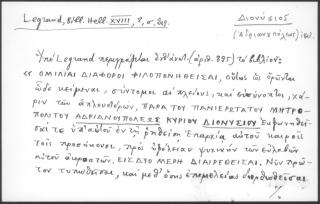 Legrand, Bibl. Hell. XVIII, 2, σ. 
ΔΙΟΝΥΣΙΟΣ
(Ἀδριανουπόλεως)
Ὑπὸ Legrand περιγράφεται (ἀριθ. 895) τὸ βιβλίον:
« ΟΜΙΛΙΑΙ ΔΙΑΦΟΡΟΙ ΦΙΛΟΠΟΝΗΘΕΙΣΑΙ, οὕτως ὡς ὁρῶνται
ὧδε κείμεναι, σύντομοι αἱ πλείους, καὶ εὐσύνοπτοι, χά-
ριν τῶν ἁπλουστέρων, ΠΑΡΑ ΤΟΥ ΠΑΝΙΕΡΩΤΑΤΟΥ ΜΗΤΡΟ-
ΠΟΛΙΤΟΥ ΑΔΡΙΑΝΟΥΠΟΛΕΩΣ ΚΥΡΙΟΥ ΔΙΟΝΥΣΙΟΥ Ἐκφωνηθεῖ-
σαί τε ὑπ' αὐτοῦ ἐν τῇ ῥηθείσῃ Ἐπαρχίᾳ αὐτοῦ καὶ
τοῖς προσκήνοις, πρὸς ὠφέλειαν ψυχικὴν τῶν εὐλαβῶν
αὐτοῦ ἀκροατῶν. ΕΙΣ ΔΥΟ ΜΕΡΗ ΔΙΑΙΡΕΘΕΙΣΑΙ. Νῦν πρῶ-
τον τυπωθεῖσαι, καὶ μεθ' ὅσης ἐπιμελείας διορθωθεῖσαι